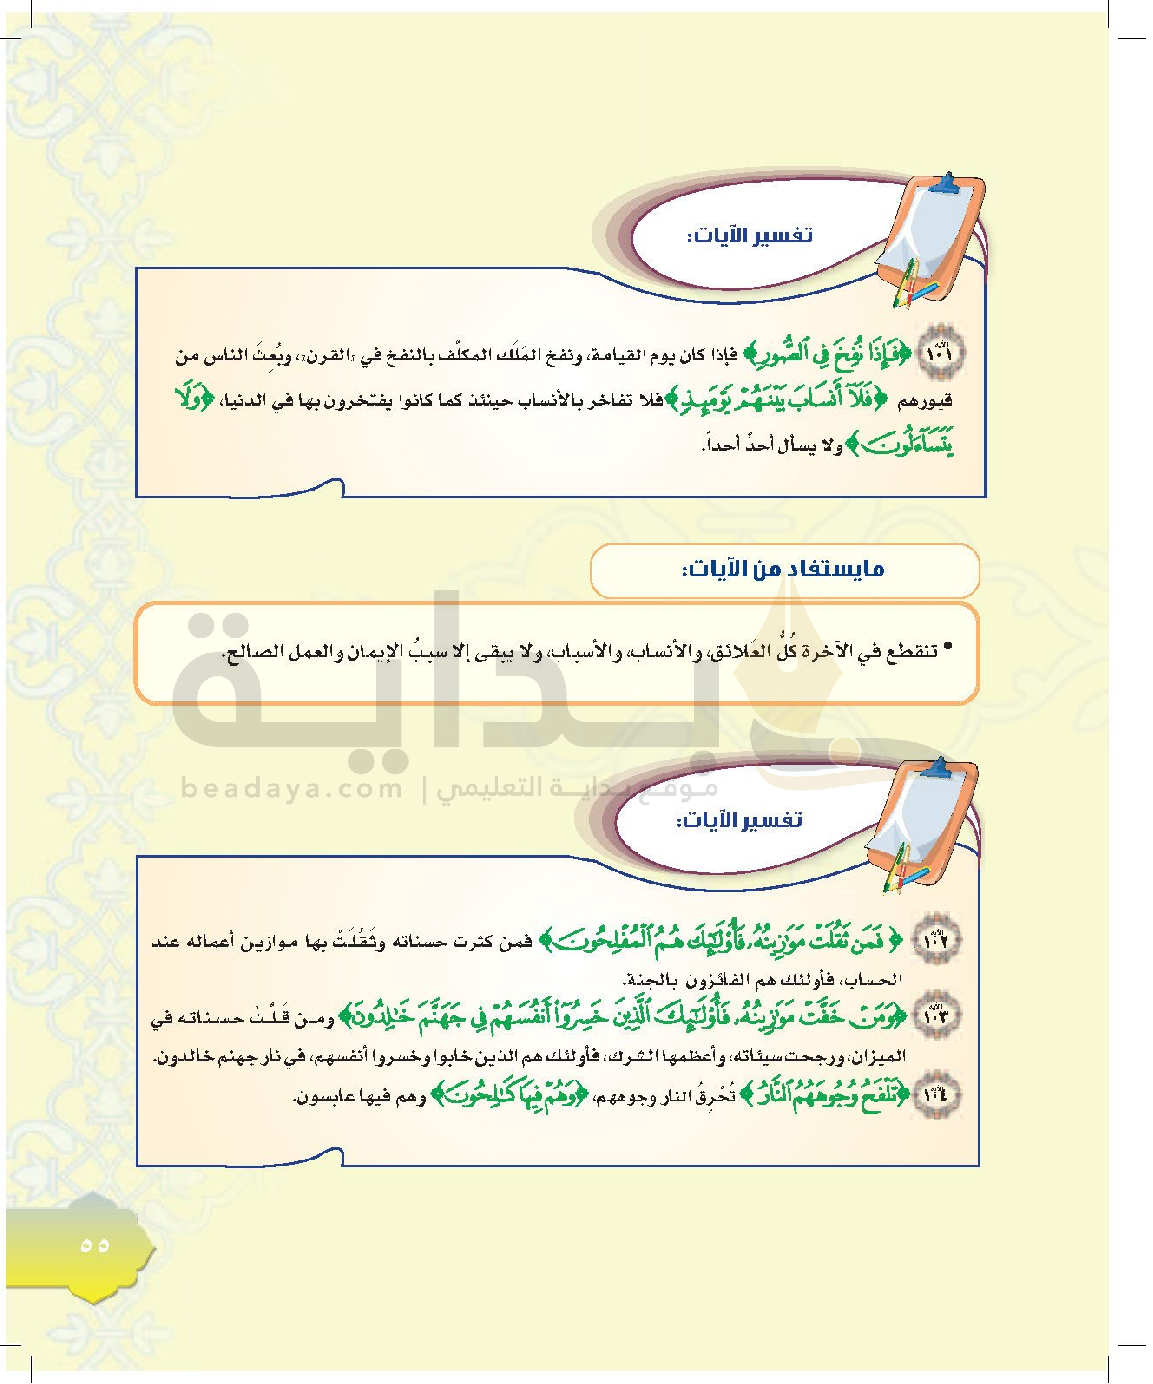 تفسير الآيات:
الآية ١٠١ ﴿فَإِذَا نُفِخَ فِي ٱلصُّورِ﴾ فإذا كان يوم القيامة، ونفخ المَلَك المكلَّف بالنفخ في «القرن»، وبُعِثَ الناس من
قبورهم ﴿فَلَآ أَنسَابَ بَيْنَهُمْ يَوْمَئِذٍ﴾ فلا تفاخر بالأنساب حينئذ كما كانوا يفتخرون بها في الدنيا، ﴿وَلَا
يَتَسَآءَلُونَ﴾ ولا يسأل أحدٌ أحداً.
مايستفاد من الآيات:
• تنقطع في الآخرة كُلُّ العَلائق، والأنساب، والأسباب، ولا يبقى إلا سببُ الإيمان والعمل الصالح.
بداية
موقع بداية التعليمي | beadaya.com
تفسير الآيات:
الآية ١٠٢ ﴿فَمَن ثَقُلَتْ مَوَٰزِينُهُۥ فَأُو۟لَٰٓئِكَ هُمُ ٱلْمُفْلِحُونَ﴾ فمن كثرت حسناته وثَقُلَتْ بها موازين أعماله عند
الحساب، فأولئك هم الفائزون بالجنة.
الآية ١٠٣ ﴿وَمَنْ خَفَّتْ مَوَٰزِينُهُۥ فَأُو۟لَٰٓئِكَ ٱلَّذِينَ خَسِرُوٓا۟ أَنفُسَهُمْ فِي جَهَنَّمَ خَٰلِدُونَ﴾ ومن قَلَّتْ حسناته في
الميزان، ورجحت سيئاته، وأعظمها الشرك، فأولئك هم الذين خابوا وخسروا أنفسهم، في نار جهنم خالدون.
الآية ١٠٤ ﴿تَلْفَحُ وُجُوهَهُمُ ٱلنَّارُ﴾ تُحْرِقُ النار وجوههم، ﴿وَهُمْ فِيهَا كَٰلِحُونَ﴾ وهم فيها عابسون.
٥٥